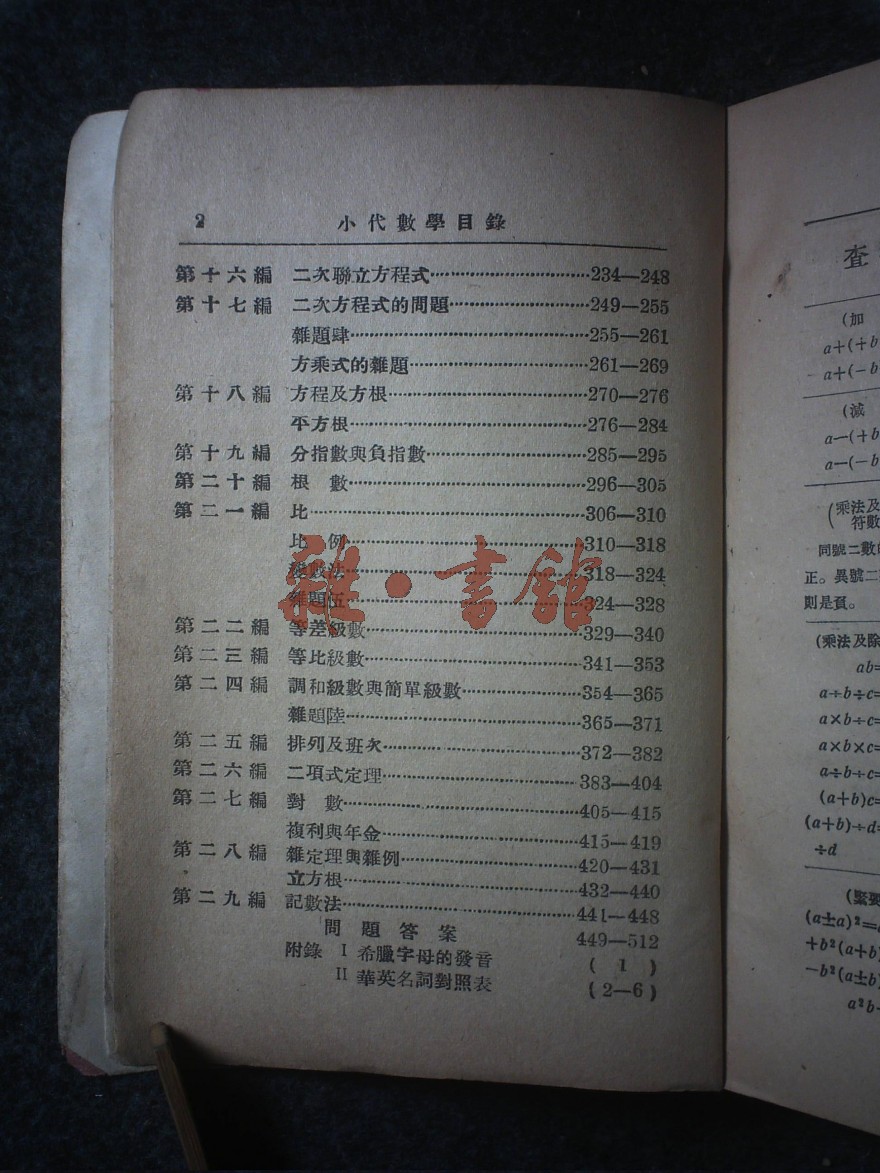 2 小代數學目錄
第十六編 二次聯立方程式 234—248
第十七編 二次方程式的問題 249—255
雜題肆 255—261
方乘式的雜題 261—269
第十八編 方程及方根 270—276
平方根 276—284
第十九編 分指數與負指數 285—295
第二十編 根 數 296—305
第二一編 比 306—310
比 例 310—318
變數法 318—324
雜題伍 324—328
第二二編 等差級數 329—340
第二三編 等比級數 341—353
第二四編 調和級數與簡單級數 354—365
雜題陸 365—371
第二五編 排列及班次 372—382
第二六編 二項式定理 383—404
第二七編 對 數 405—415
複利與年金 415—419
第二八編 雜定理與雜例 420—431
立方根 432—440
第二九編 記數法 441—448
問題答案 449—512
附錄 I 希臘字母的發音 ( 1 )
II 華英名詞對照表 (2—6)
雜·書館
查
(加
a+(+b
a+(−b
(減
a−(+b
a−(−b
(乘法及
符數
同號二數的
正。異號二
則是負。
(乘法及除
ab=
a÷b÷c=
a×b÷c=
a×b×c=
a÷b÷c=
(a+b)c=
(a+b)÷d=
÷d
(緊要
(a±a)²=
+b²(a+b)
−b²(a±b)
a²b−